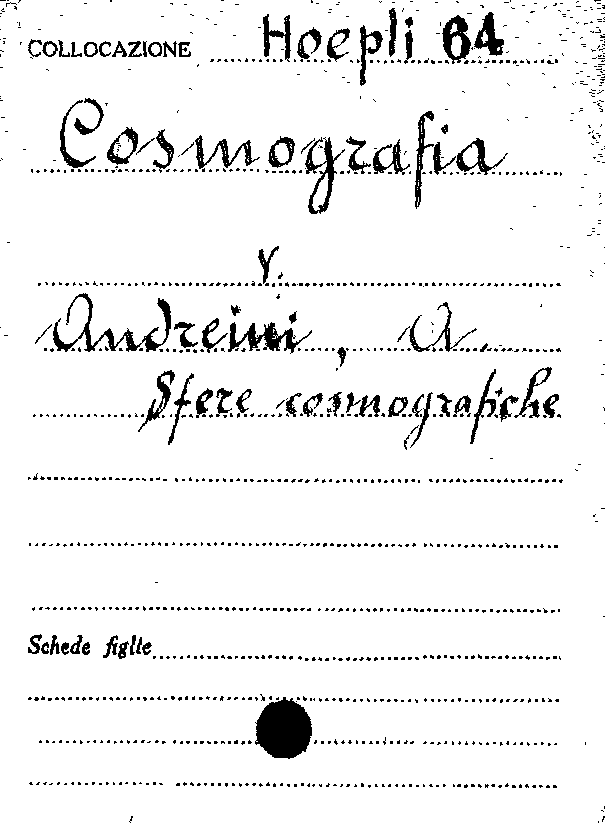 COLLOCAZIONE Hoepli 64
Cosmografia
v.
Andreini, A.
Sfere cosmografiche
Schede figlie